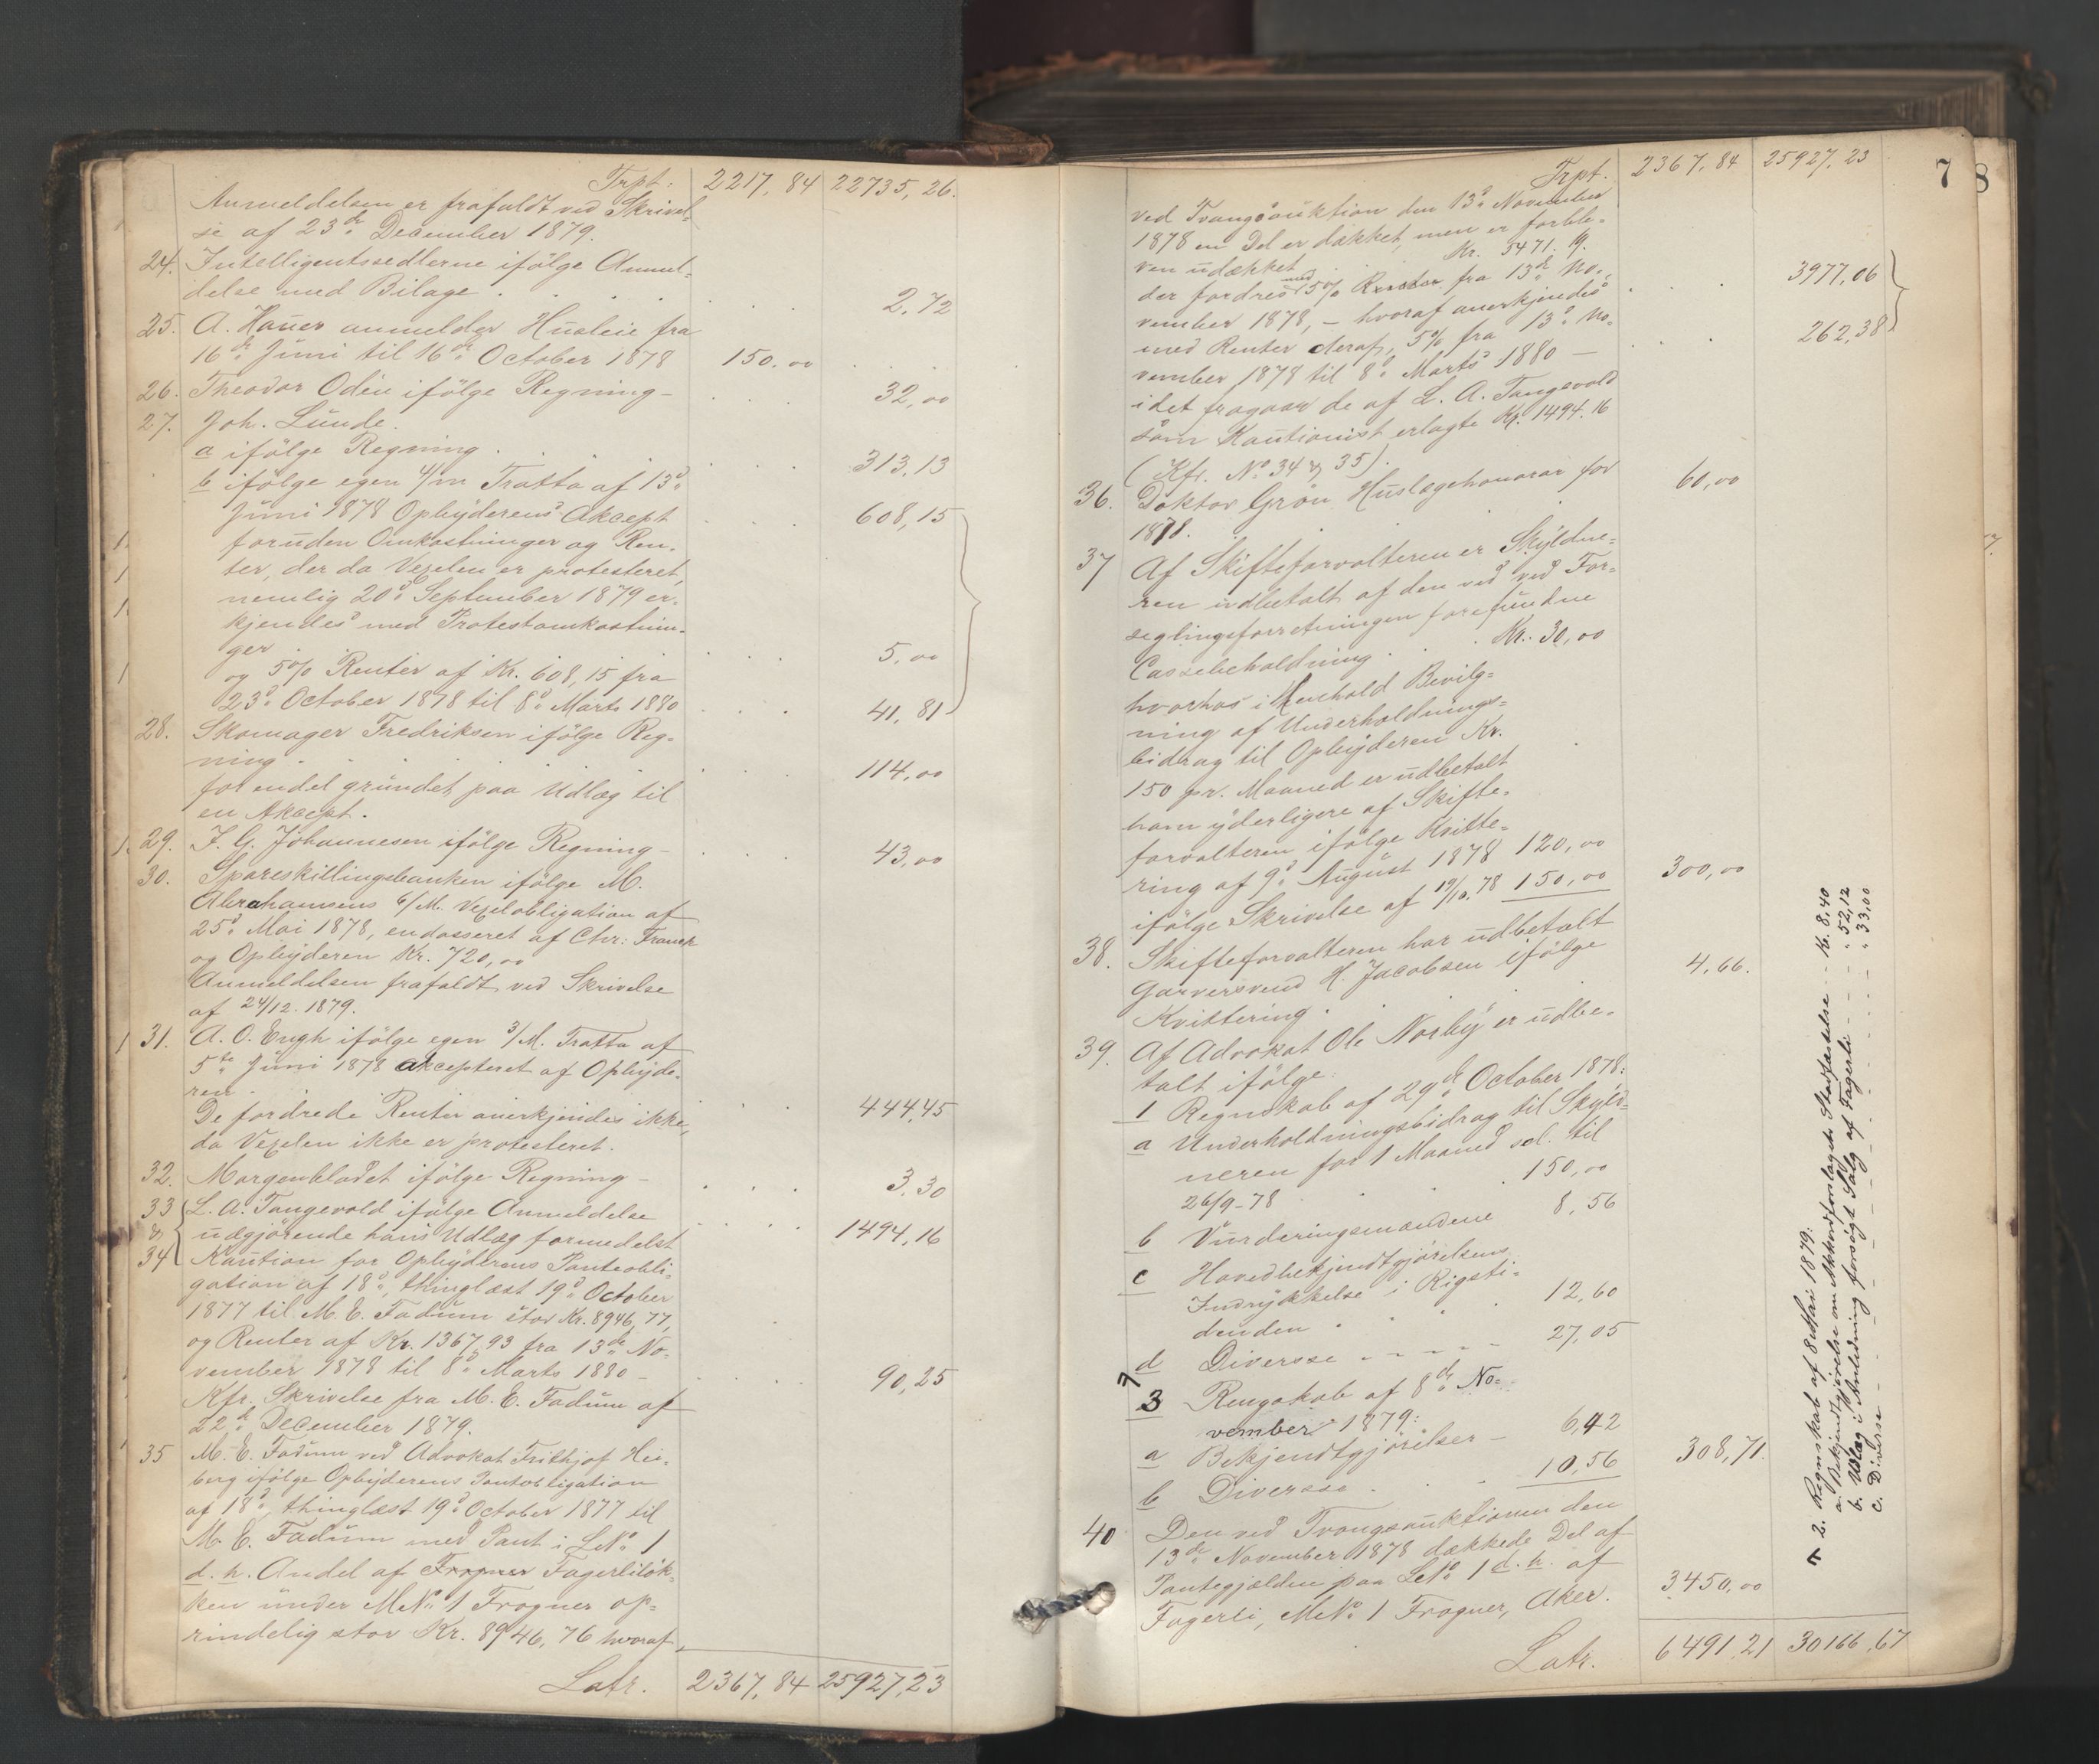 Trpt: 2217,84 22735,26.
Anmeldelsen er frafaldt ved Skrivel-
se af 23de December 1879.
24. Intelligentssedlerne ifölge Anmel-
delse med Bilage . . . . . 2,72
25. A. Hauer anmelder Husleie fra
16de Juni til 16de October 1878 150,00
26. Theodor Odén ifölge Regning - . . . 32,00
27. Joh. Lunde.
a ifölge Regning . . . . . 313,13
b ifölge egen 4/m Tratta af 13d
Juni 1878 Opbyderens Akcept . . . 608,15
foruden Omkostninger og Ren-
ter, der da Vexelen er protesteret,
nemlig 20d September 1879 er-
kjendes med Protestomkostnin-
ger . . . . 5,00
og 5% Renter af Kr. 608,15 fra
23d October 1878 til 8d Marts 1880 . . . 41,81
28. Skomager Fredriksen ifölge Reg-
ning . . . . . . 114,00
for endel grundet paa Udlæg til
en Akcept.
29. J. G. Johannesen ifölge Regning - . . . 43,00
30. Spareskillingsbanken ifölge M.
Abrahamsens 6/M. Vexelobligation af
25d Mai 1878, endosseret af Chr: Franck
og Opbyderen Kr. 720,00
Anmeldelsen frafaldt ved Skrivelse
af 24/12. 1879.
31. A. O. Engh ifölge egen 3/M. Tratta af
5te Juni 1878 akcepteret af Opbyde-
ren . . . . 444,45
De fordrede Renter anerkjendes ikke,
da Vexelen ikke er protesteret.
32. Morgenbladet ifölge Regning - . . . 3,30
33 L. A. Tangevold ifölge Anmeldelse
& udgjörende hans Udlæg formedelst . . . . 1494,16
34 Kaution for Opbyderens Panteobli-
gation af 18d, thinglæst 19d October
1877 til M. E. Fadum stor Kr. 8946,77,
og Renter af Kr. 1367,93 fra 13de No-
vember 1878 til 8d Marts 1880 - . . . 90,25
Kfr. Skrivelse fra M. E. Fadum af
22de December 1879.
35 M. E. Fadum ved Advokat Frithjof Hei-
berg ifölge Opbyderens Pantobligation
af 18d, thinglæst 19d October 1877 til
M. E. Fadum med Pant i LNo 1
d. h. Andel af Frogner Fagerliløk-
ken under MNo 1 Frogner op-
rindelig stor Kr. 8946,76 hvoraf,
Latr. 2367,84 25927,23
7 8
Trpt. 2367,84 25927,23
ved Tvangsauktion den 13d November
1878 en Del er dækket, men er forble-
ven udækket . . . Kr. 5471.19.
der fordres med 5% Renter fra 13de No-
vember 1878, - hvoraf anerkjendes . . . 3977,06
med Renter deraf, 5% fra 13d No-
vember 1878 til 8d Marts 1880 - . . . 262,38
idet fragaar de af L. A. Tangevold
som Kautionist erlagte Kr. 1494.16
(Kfr. No 34 & 35).
36. Doktor Grön Huslægehonorar for
1878. . . . . 60,00
37 Af Skifteforvalteren er Skyldne-
ren indbetalt af den ved ved For-
seglingsforretningen forefundne
Cassebeholdning . . . Kr. 30,00
hvorhos i Henhold Bevilg-
ning af Underholdnings-
bidrag til Opbyderen Kr.
150 pr. Maaned er udbetalt
ham yderligere af Skifte-
forvalteren ifölge Kvitte-
ring af 9d August 1878 120,00
ifölge Skrivelse af 19/10.78 150,00 300,00
38. Skifteforvalteren har udbetalt
Garversvend H Jacobsen ifölge
Kvittering . . . 4,66.
39. Af Advokat Ole Norby er udbe-
talt ifölge:
1 Regnskab af 29de October 1878:
a Underholdningsbidrag til Skyld-
neren for 1 Maaned sol. til
26/9-78 . . . 150,00
b Vurderingsmændene 8,56
c Hovedbekjendtgjörelsens
Indrykkelse i Rigsti-
denden . . . . 12,60
d Diversse - - - - - 27,05
3 Rengskab af 8de No-
vember 1879:
a Bekjendtgjörelser - 6,42
b Diversse . . . 10,56 308,71.
40 Den ved Tvangsauktionen den
13de November 1878 dækkede Del af
Pantegjælden paa LNo 1 d. h. af
Fagerli, MNo 1 Frogner, Aker. 3450,00
Latr. 6491,21 30166,67
2. Regnskab af 8 Mai 1879:
a. Bekjendtgjörelse om Akkordforslagets Stadfæstelse - - Kr. 8,40
b. Udlæg i Anledning forsögt Salg af Fagerli - - - " 52,12
c. Diverse - - - - - - " 33,00